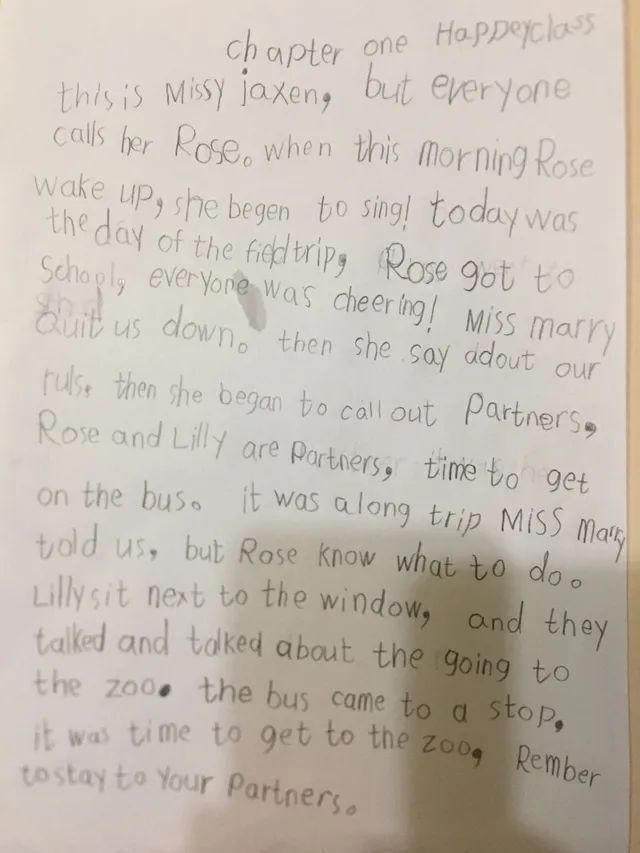 chapter one Happeyclass
this is Missy jaxen, but everyone
calls her Rose. when this morning Rose
wake up, she begen to sing! today was
the day of the fieldtrip, Rose got to
School, everyone was cheering! Miss marry
Quit us down. then she say adout our
ruls. then she began to call out Partners,
Rose and Lilly are Partners, time to get
on the bus. it was along trip Miss Marry
told us, but Rose know what to do.
Lilly sit next to the window, and they
talked and talked about the going to
the zoo. the bus came to a stop,
it was time to get to the zoo, Rember
to stay to Your Partners.